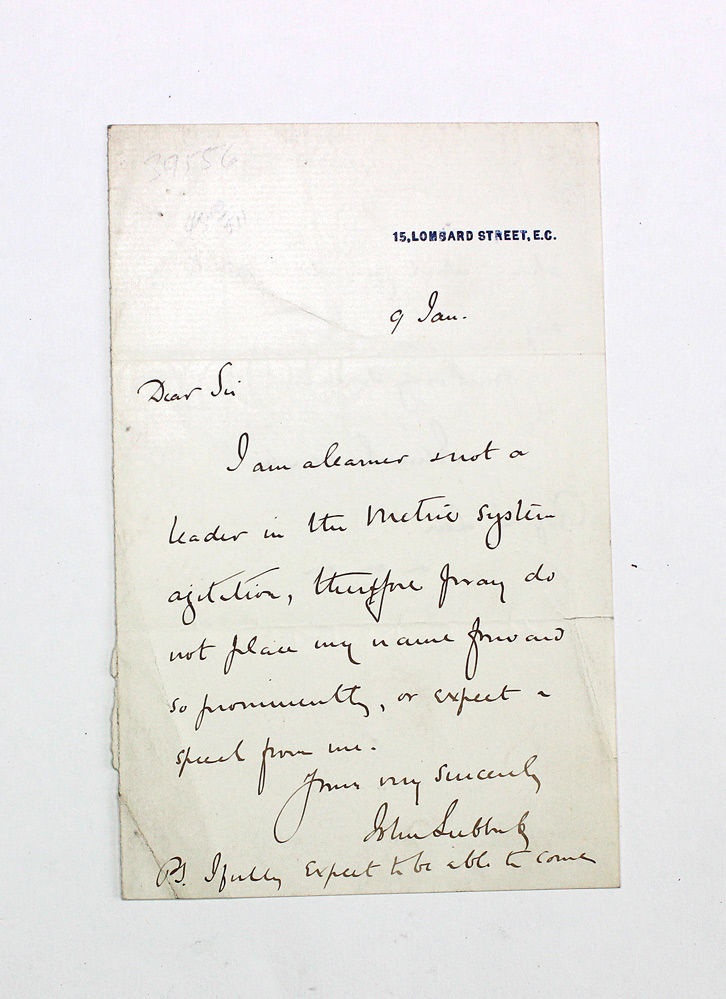 39556
15, LOMBARD STREET, E.C.
9 Jan.
Dear Sir
I am a learner & not a
leader in the Metric system
agitation, therefore pray do
not place my name forward
so prominently, or expect a
speech from me.
Yours very sincerely
John Lubbock
PS. I fully expect to be able to come